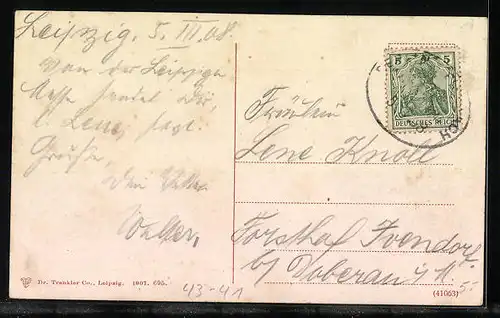 Leipzig, 5. III. 08
Von der Leipziger
Messe sendet Dir,
l. Lene, herzl.
Grüße,
Dein Vetter
Walter,
5 5
DEUTSCHES REICH
Fräulein
Lene Knoll
Forsthof Ivendorf
b/ Doberan i/M.
Dr. Trenkler Co., Leipzig. 1907. 695.
43-41
(41063)